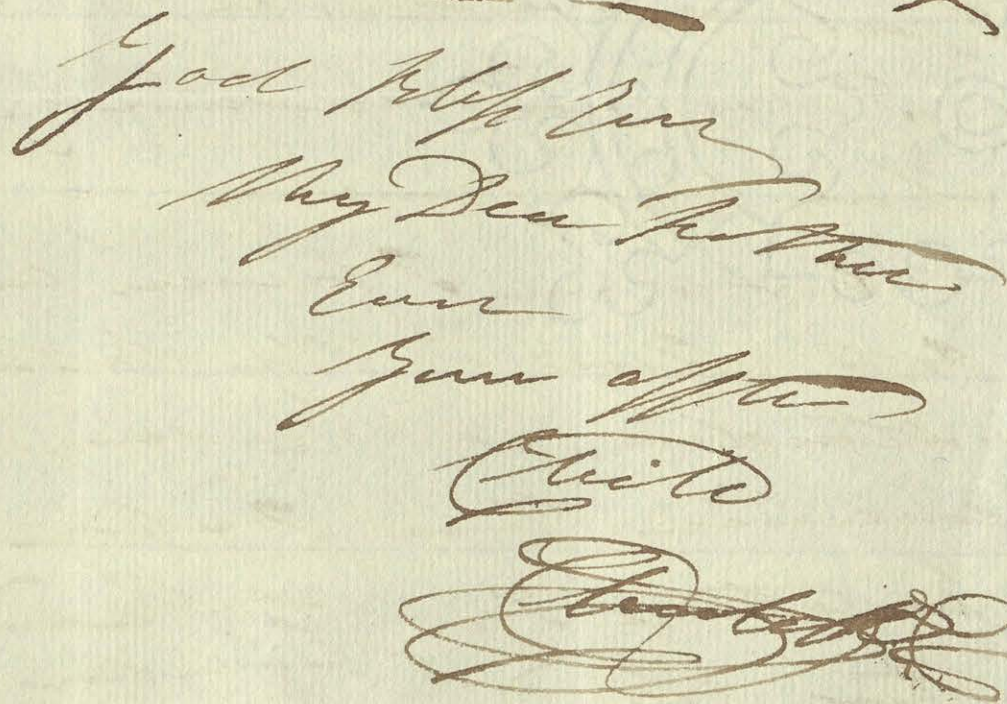 God bless You
My Dear Father
Ever
Your affte
Child